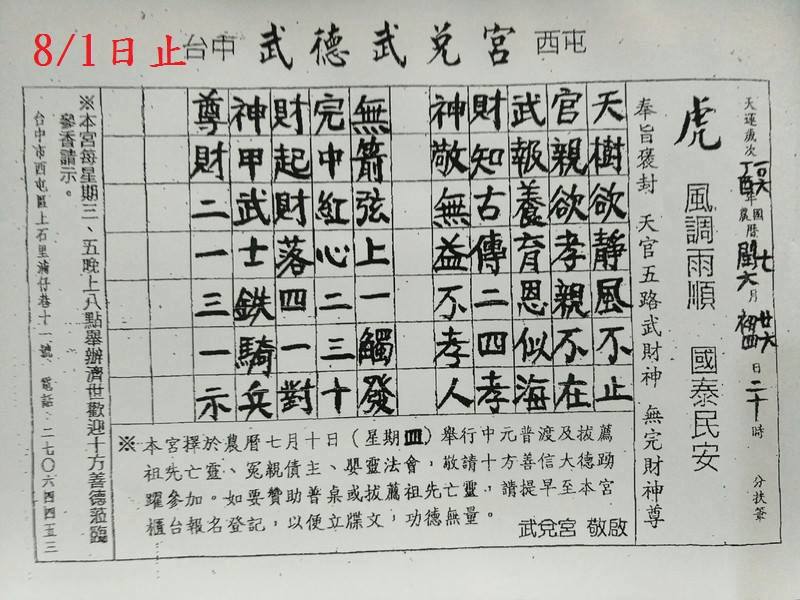 8/1日止
台中 武德武兌宮 西屯
天運歲次丁酉年 國曆七月廿六日二十時 分扶筆
農曆閏六月初四
虎 風調雨順 國泰民安
奉旨褒封 天官五路武財神 無完財神尊
天樹欲靜風不止
官親欲孝親不在
武報養育恩似海
財知古傳二四孝
神敬無益不孝人
無箭弦上一觸發
完中紅心二三十
財起財落四一對
神甲武士鉄騎兵
尊財二一三一示
※本宮擇於農曆七月十日(星期四)舉行中元普渡及拔薦
祖先亡靈、冤親債主、嬰靈法會,敬請十方善信大德踴
躍參加。如要贊助普桌或拔薦祖先亡靈,請提早至本宮
櫃台報名登記,以便立牒文,功德無量。
武兌宮 敬啟
※本宮每星期三、五晚上八點舉辦濟世歡迎十方善德蒞臨
參香請示。
台中市西屯區上石里湳仔巷十一號 電話:二七〇六四四五三